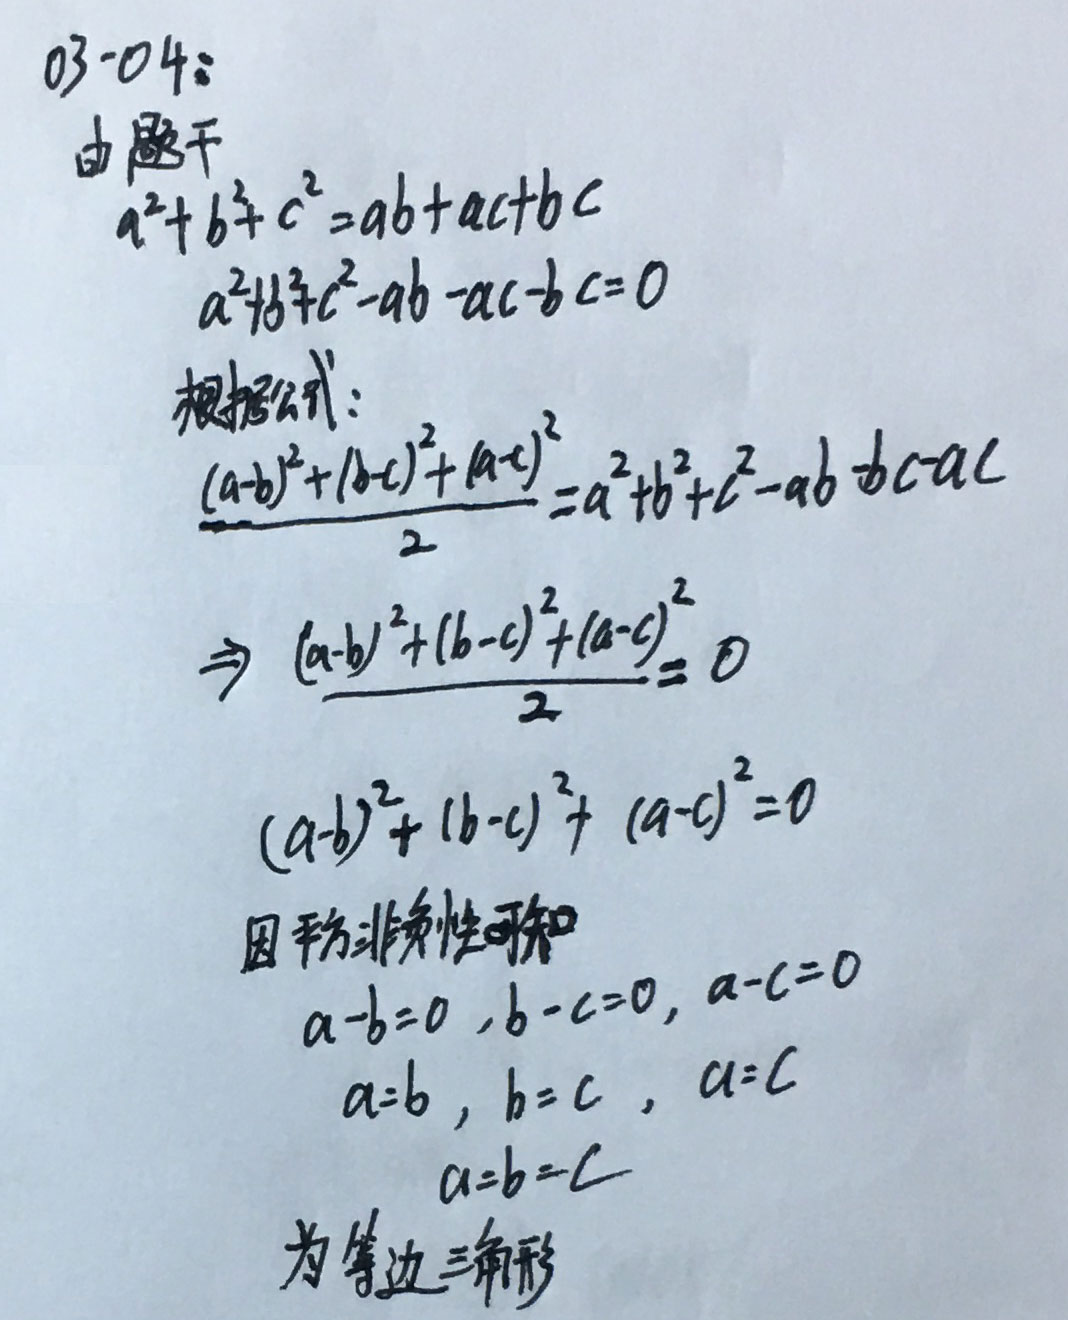 03-04:
由题干
a²+b²+c²=ab+ac+bc
a²+b²+c²-ab-ac-bc=0
根据公式:
((a-b)²+(b-c)²+(a-c)²)/2=a²+b²+c²-ab-bc-ac
⇒ ((a-b)²+(b-c)²+(a-c)²)/2=0
(a-b)²+(b-c)²+(a-c)²=0
因平方非负性可知
a-b=0,b-c=0,a-c=0
a=b,b=c,a=c
a=b=c
为等边三角形